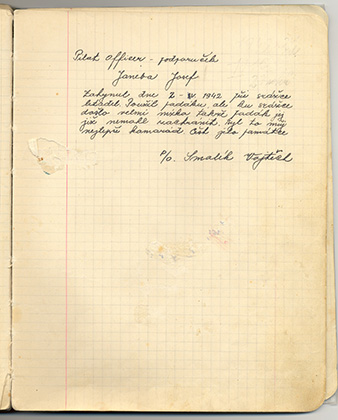 Pilot Officer - podporučík
Janeba Josef
Zahynul dne 2 - IV. 1942 při srážce
letadel. Použil padáku, ale ku srážce
došlo velmi nízko takže padák jej
již nemohl zachránit. Byl to můj
nejlepší kamarád Čest jeho památce
P/O. Smolík Vojtěch